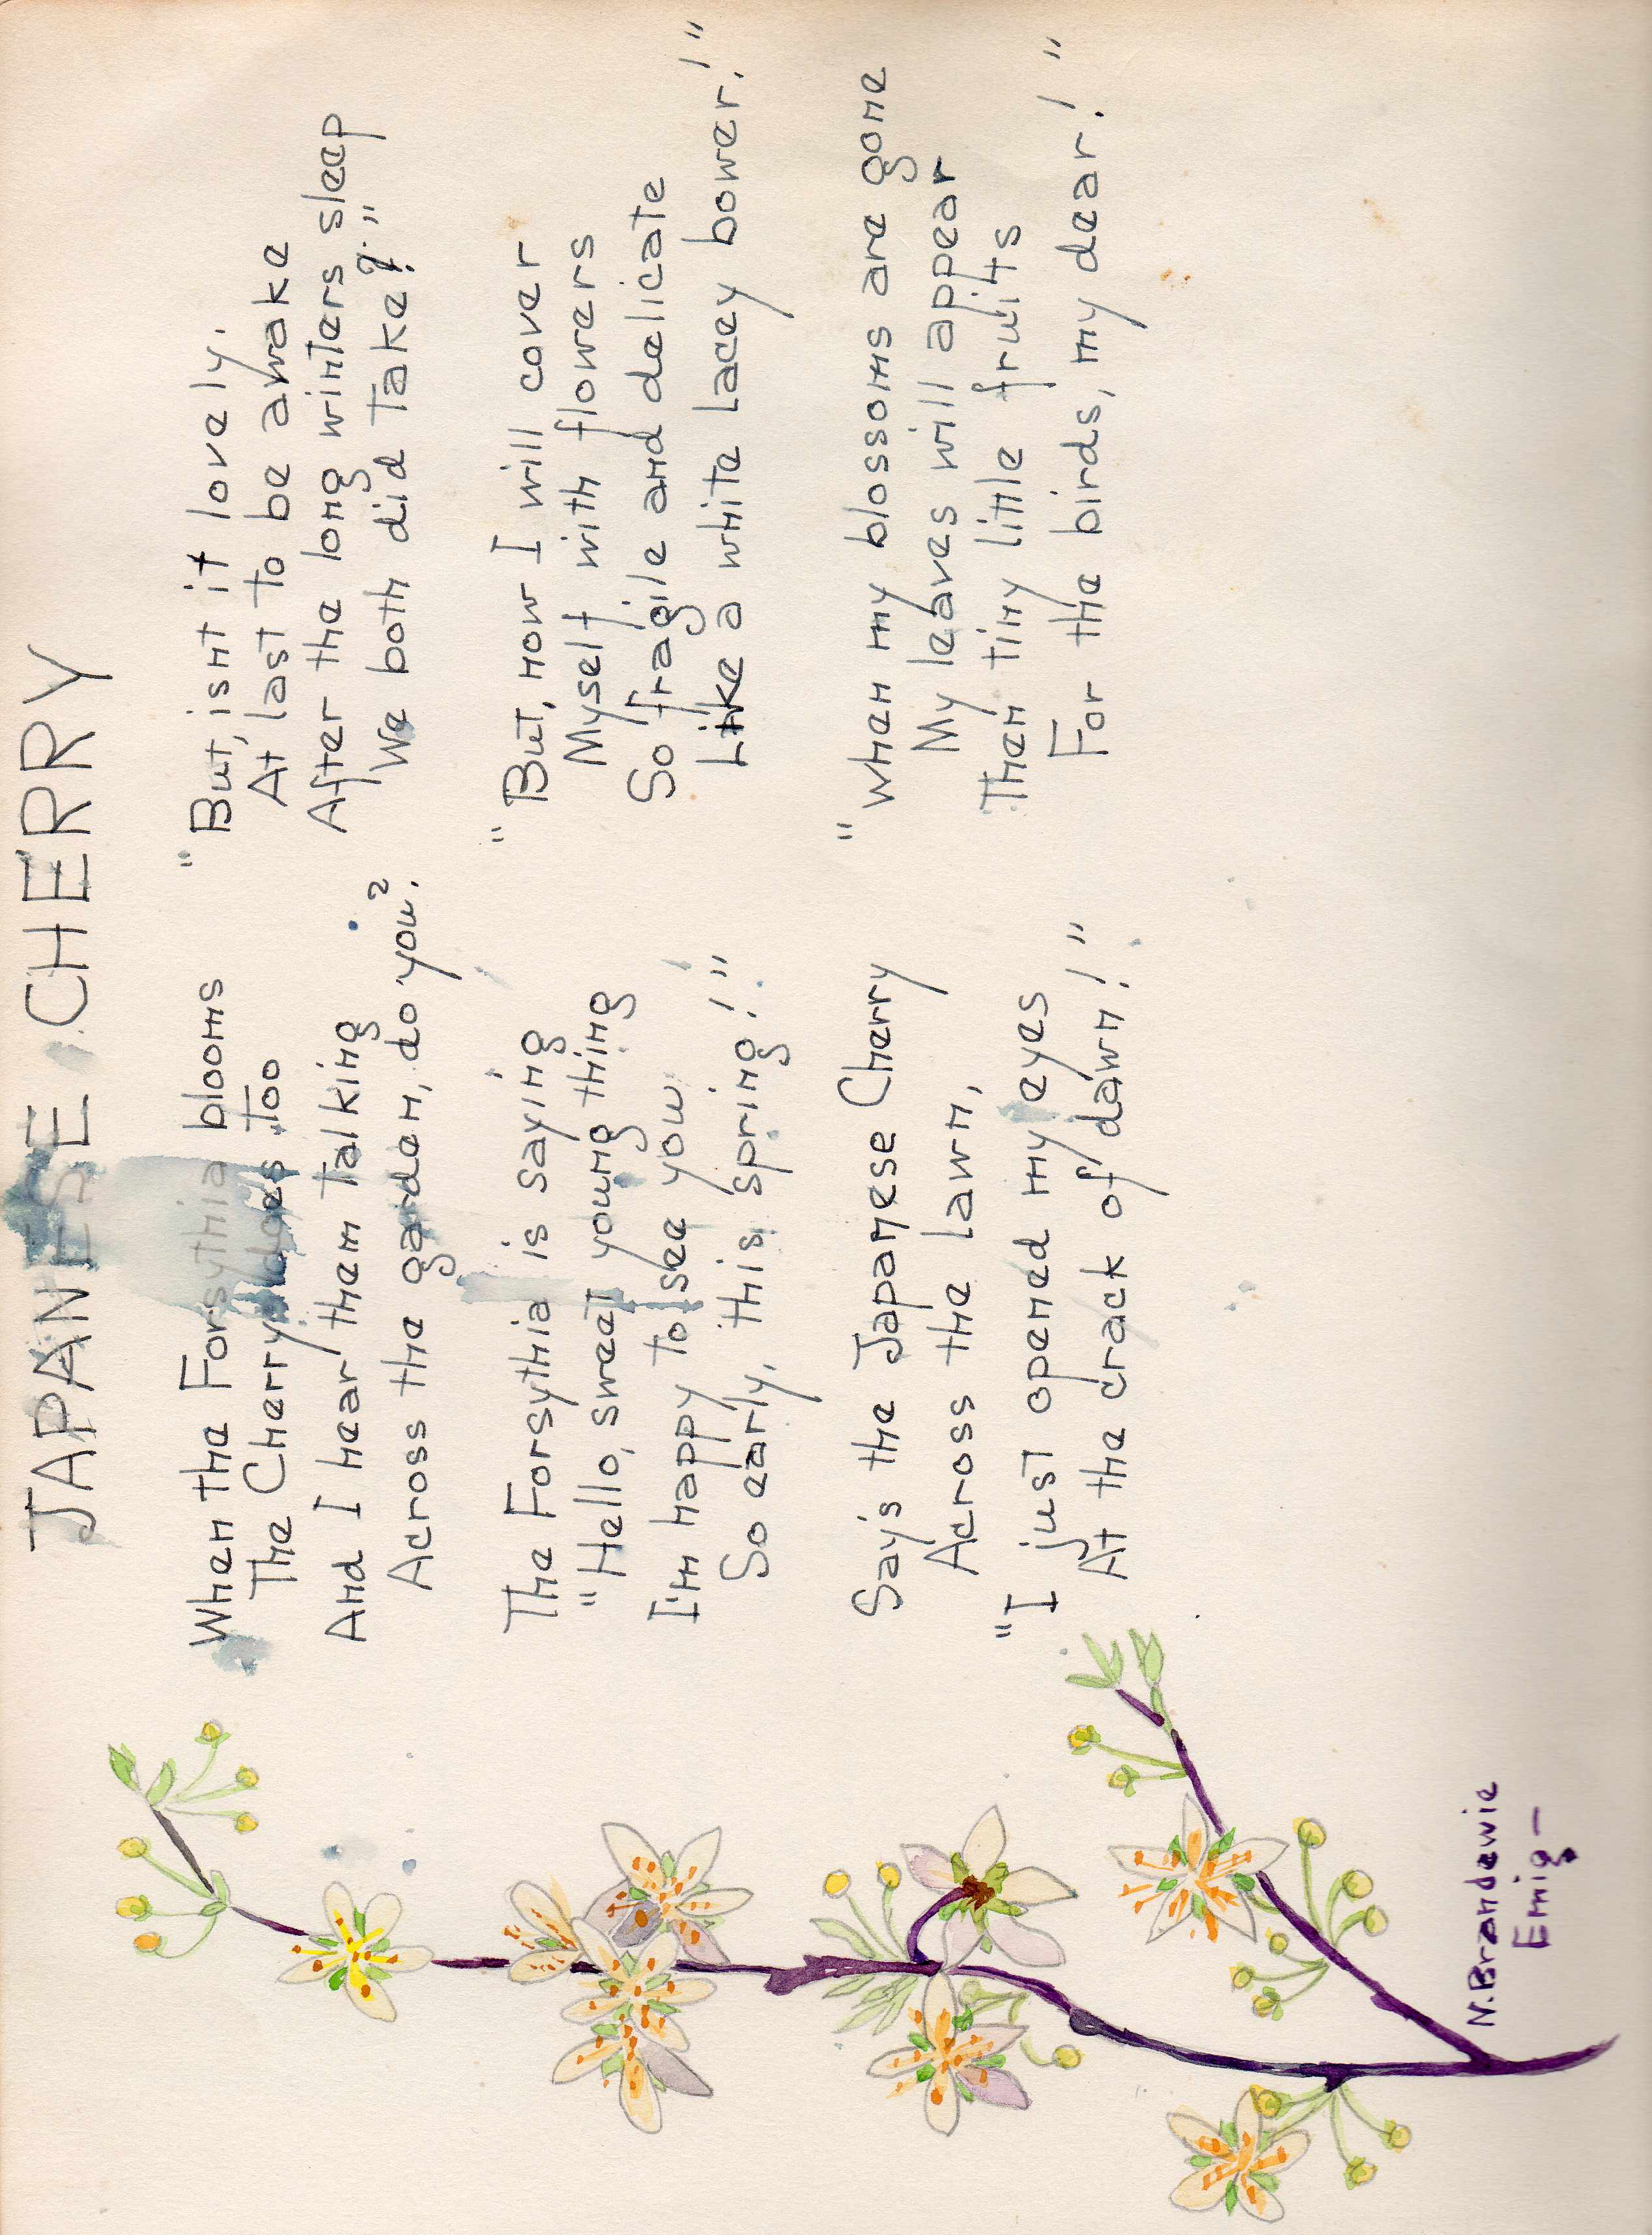 JAPANESE CHERRY
When the Forsythia blooms
The Cherry does too
And I hear them talking
Across the garden, do you?
The Forsythia is saying
"Hello, sweet young thing
I'm happy to see you
So early, this spring!"
Say's the Japanese Cherry
Across the lawn,
"I just opened my eyes
At the crack of dawn!"
"But, isnt it lovely.
At last to be awake
After the long winters sleep
We both did take?"
"But, now I will cover
Myself with flowers
So fragile and delicate
Like a white lacey bower!"
"When my blossoms are gone
My leaves will appear
Then tiny little fruits
For the birds, my dear!"
N. Brandewie
Emig-